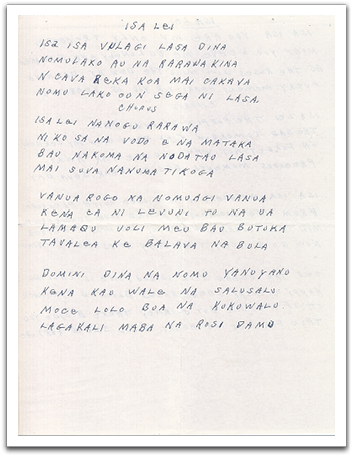 ISA LEI
ISA ISA VULAGI LASA DINA
NOMULAKO AU NA RARAWA KINA
N CAVA BEKA KOA MAI CAKAVA
NOMU LAKO OUN SEGA NI LASA.
CHORUS
ISA LEI NANOGU RARAWA
NI KO SA NA VODO E NA MATAKA
BAU NAKOMA NA NODATAU LASA
MAI SUVA NANUMA TIKOGA
VANUA ROGO NA NOMUAGI VANUA
KENA CA NI LEVUNI TO NA UA
LAMAQU VOLI MEU BAU BUTUKA
TAVALEA KE BALAVA NA BULA
DOMINI DINA NA NOMU YANUYANU
KENA KAU WALE NA SALUSALU
MOCE LOLO BUA NA KUKUWALU
LAGAKALI MABA NA ROSI DAMU